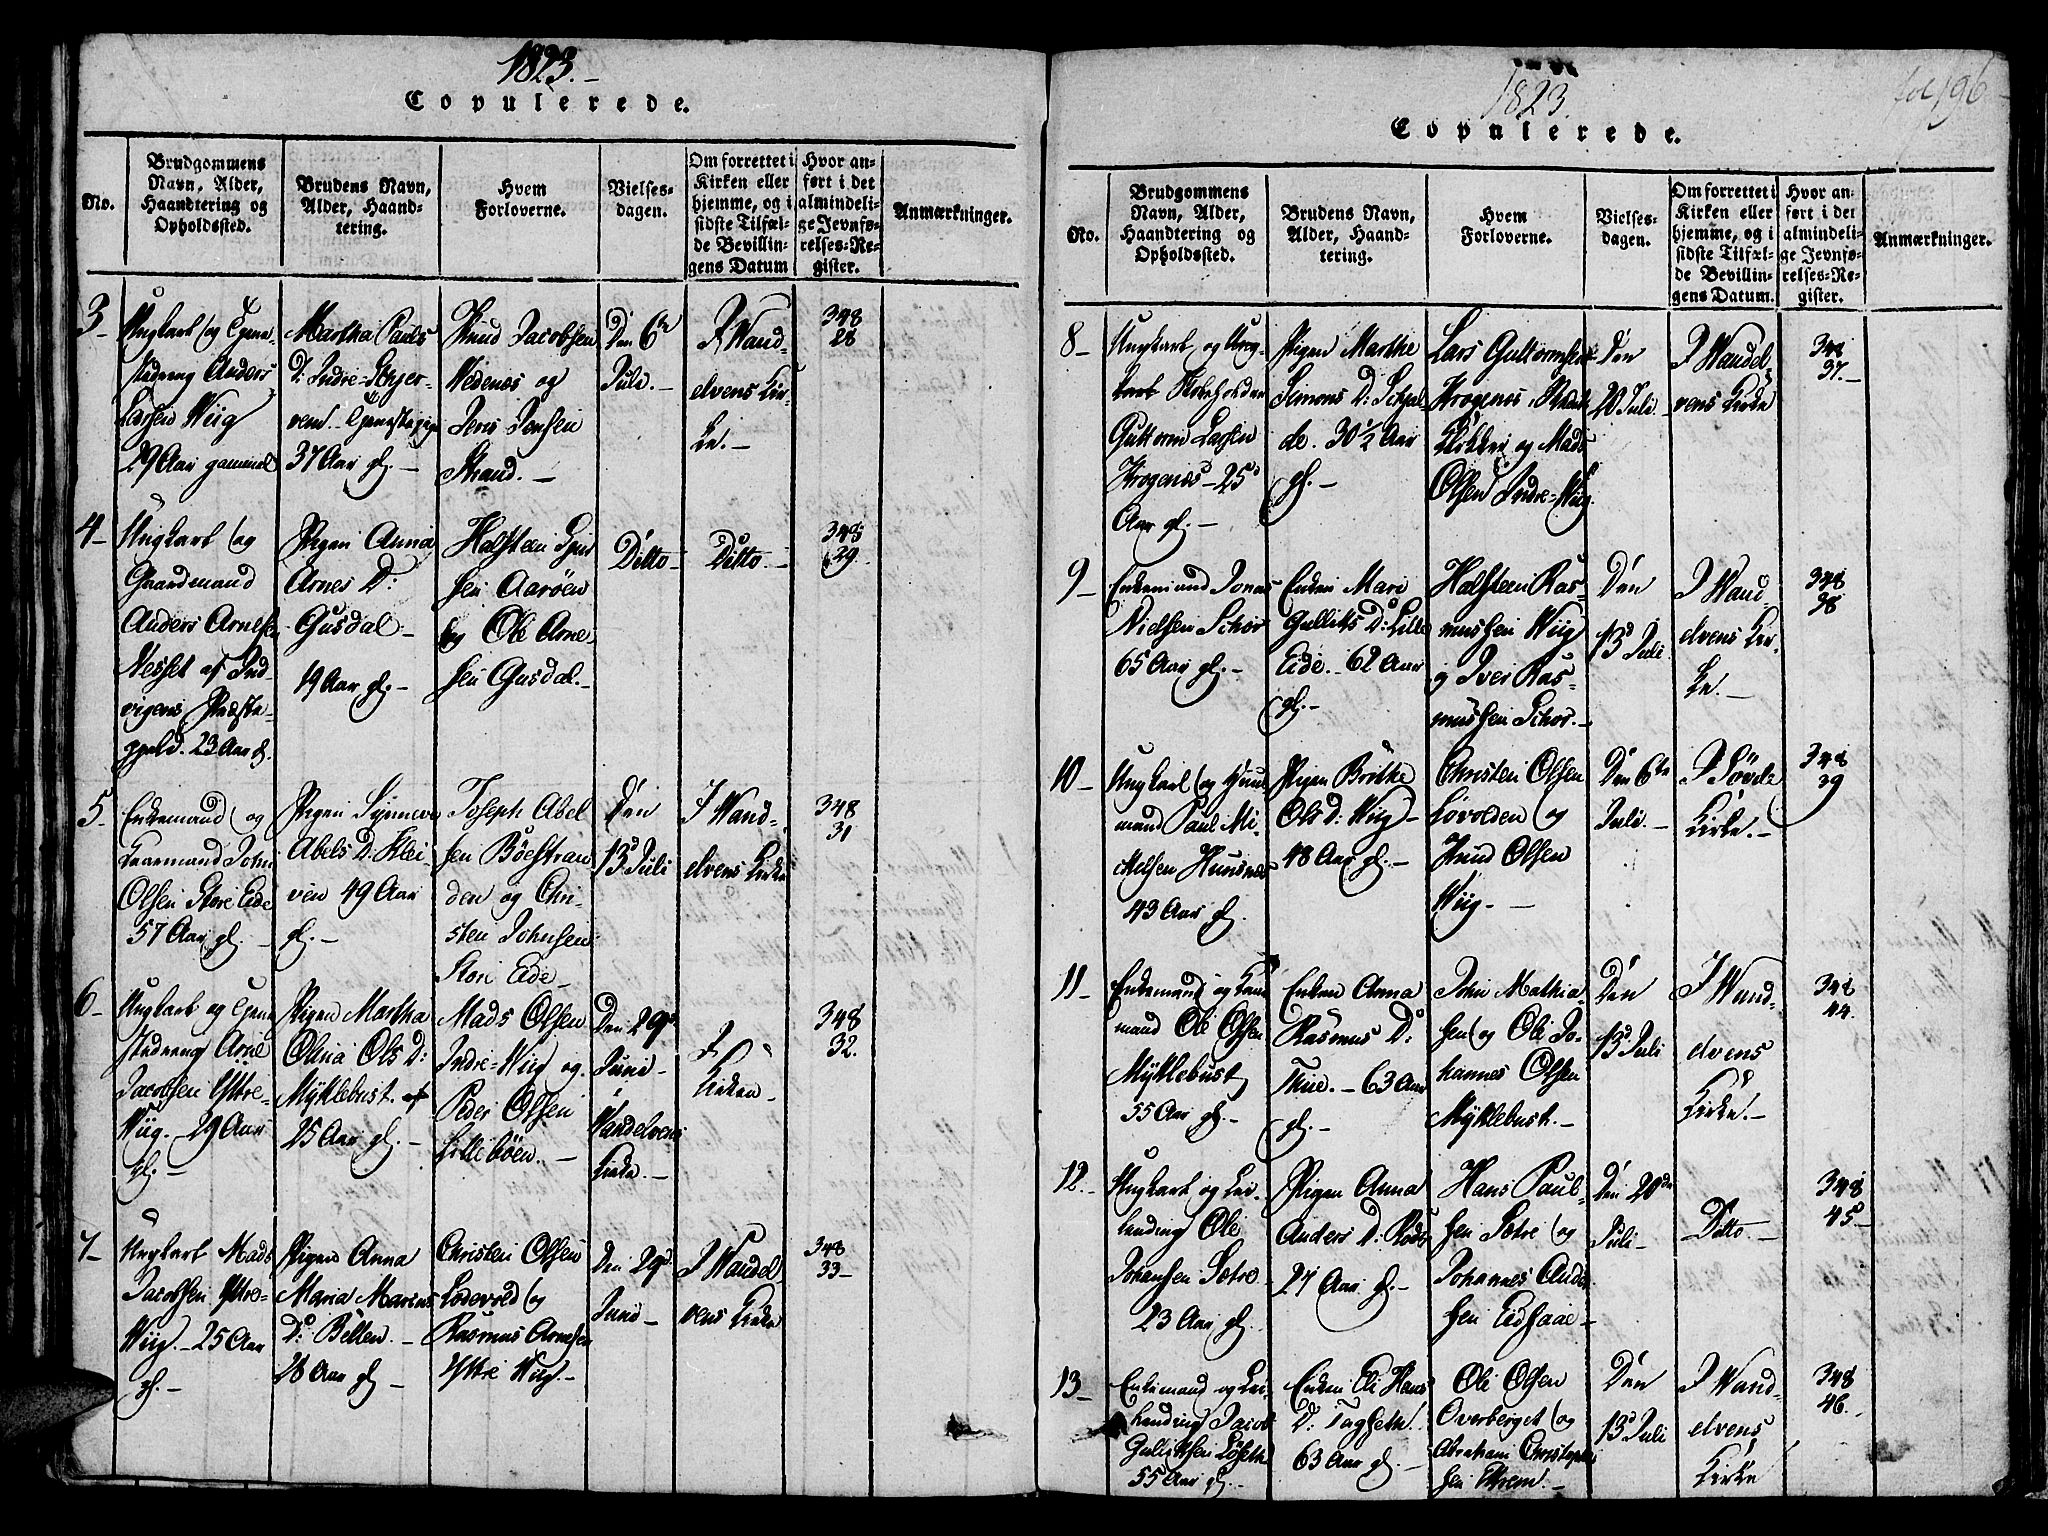 1823.
Copulerede.
No.
Brudgommens
Navn, Alder,
Haandtering og
Opholdssted.
Brudens Navn,
Alder, Haand-
tering.
Hvem
Forloverne.
Vielses-
dagen.
Om forrettet i
Kirken eller
hjemme, og i
sidste Tilfæl-
de Bevillin-
gens Datum
Hvor an-
ført i det
almindeli-
ge Jevnfø-
relses-Re-
gister.
Anmærkninger.
3
Ungkarl og Tjene-
stedreng Anders
Larsen Wiig
29 Aar gammel
Martha Pauls
D: Indre-
37 Aar gl.
Knud Jacobsen
Wedenes og
Jensen
Strand.
Den 6te
Juli.
I Wand-
elvens Kir-
ke.
348
28
4
Ungkarl og
Gaardmand
Anders Arnesen
Nesset af Ind-
vigens Præste-
gjeld. 23 Aar gl.
Pigen Anna
Arnes D:
Gusdal
19 Aar gl.
Halsteen
sen Aarøen
og Ole Arne
sen Gusdal.
Ditto
Ditto
348
29.
5
Enkemand og
Kaarmand John
Olsen Store Eide
57 Aar gl.
Pigen Synneve
Abels D: Klei-
ven 49 Aar
gl.
Joseph Abel
sen Bøestran
den og Chri-
sten Johnsen
Store Eide
Den
13d Juli
I Wand-
elvens Kirke
348
31
6
Ungkarl og Tjene
stedreng Arne
Jacobsen Yttre-
Wiig. 29 Aar
gl.
Pigen Martha
Olina Ols D:
Myklebust.
25 Aar gl.
Mads Olsen
Indre-Wiig og
Peder Olsen
Lillebøen.
Den 29d
Juni
Wandelvens
Kirke.
I
Kirken
348
32.
7
Ungkarl Mads
Jacobsen Yttre-
Wiig. 25 Aar
gl.
Pigen Anna
Maria Marius
D:
28 Aar gl
Christen Olsen
Lodevold og
Rasmus Arnesen
Yttre Wiig.
Den 29d
Juni
I Wandel
vens Kirke
348
33
1823.
fol 96
Copulerede.
No.
Brudgommens
Navn, Alder,
Haandtering og
Opholdssted.
Brudens Navn,
Alder, Haand-
tering.
Hvem
Forloverne.
Vielses-
dagen.
Om forrettet i
Kirken eller
hjemme, og i
sidste Tilfæl-
de Bevillin-
gens Datum.
Hvor an-
ført i det
almindeli-
ge Jevnfø-
relses-Re-
gister.
Anmærkninger.
8
Ungkarl og
Guttorm Larsen
Krogenæs 25
Aar gl.
Pigen Marthe
Simons D:
de. 30 1/2 Aar
gl.
Lars Guttormsen
Krogenes
Klokker og Mads
Olsen Indre-Wiig.
Den
20 Juli
I Wandel-
vens Kirke
348
37.
9
Enkemand Jonas
Nielsen Schor
65 Aar gl.
Enken Mari
Gulliks D: Lille
Eide. 62 Aar
gl.
Halsteen Ras-
mussen Wiig
og Iver Ras-
mussen Schor.
Den
13d Juli
I Wand
elvens Kir-
ke.
348
38
10
Ungkarl og
mand Paul Mi-
kkelsen Hunsnes
43 Aar gl.
Pigen Brithe
Ols D: Wiig
48 Aar gl.
Christen Olsen
Lovolden og
Knud Olsen
Wiig.
Den 6te
Juli.
I Bøvde
Kirke.
348
39
11
Enkemand og
mand Ole Olsen
Myklebust
55 Aar gl.
Enken Anna
Rasmus D:
Tkue. 63 Aar
gl.
John Mathia-
sen og Ole Jo-
hannes Olsen
Myklebust.
Den
13d Juli
I Wand-
elvens
Kirke.
348
44.
12.
Ungkarl og Lei-
lending Ole
Johansen Sætre
23 Aar gl.
Pigen Anna
Anders D:
27 Aar gl.
Hans Paul-
sen Sætre og
Johannes Ander
sen Eidsaae
Den 20de
Juli
Ditto.
348
45
13
Enkemand og Lei-
lending Jacob
Gulliksen Løseth
55 Aar gl.
Enken Eli Hans
D:
63 Aar gl.
Ole Olsen
Overberget og
Abraham Christophe
sen
Den
13d Juli
I Wand-
elvens
Kirke
348
46.